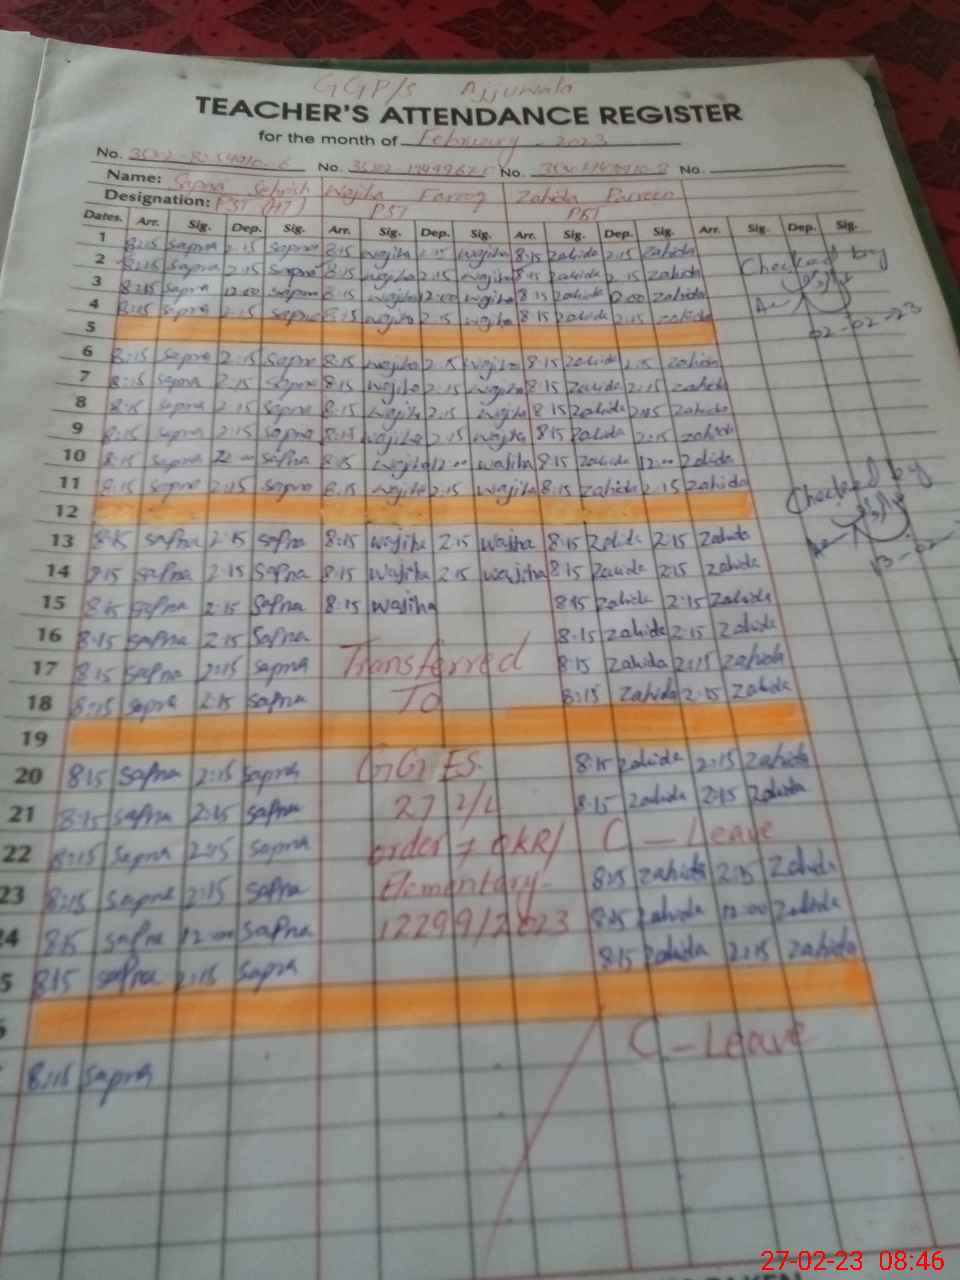 GGP/S Ajjuwala
TEACHER'S ATTENDANCE REGISTER
for the month of February - 2023
No. No. No. No.
Name: Sapna Sehrish Wajiha Farooq Zahida Parveen
Designation: PST (HT) PST PST
Dates. Arr. Sig. Dep. Sig. Arr. Sig. Dep. Sig. Arr. Sig. Dep. Sig. Arr. Sig. Dep. Sig.
1 8:15 Sapna 2:15 Sapna 8:15 Wajiha 2:15 Wajiha 8:15 Zahida 2:15 Zahida
2 8:15 Sapna 2:15 Sapna 8:15 Wajiha 2:15 Wajiha 8:15 Zahida 2:15 Zahida Checked by
3 8:15 Sapna 12:00 Sapna 8:15 Wajiha 12:00 Wajiha 8:15 Zahida 12:00 Zahida
4 8:15 Sapna 2:15 Sapna 8:15 Wajiha 2:15 Wajiha 8:15 Zahida 2:15 Zahida 02-02-23
5
6 8:15 Sapna 2:15 Sapna 8:15 Wajiha 2:15 Wajiha 8:15 Zahida 2:15 Zahida
7 8:15 Sapna 2:15 Sapna 8:15 Wajiha 2:15 Wajiha 8:15 Zahida 2:15 Zahida
8 8:15 Sapna 2:15 Sapna 8:15 Wajiha 2:15 Wajiha 8:15 Zahida 2:15 Zahida
9 8:15 Sapna 2:15 Sapna 8:15 Wajiha 2:15 Wajiha 8:15 Zahida 2:15 Zahida
10 8:15 Sapna 12:00 Sapna 8:15 Wajiha 12:00 Wajiha 8:15 Zahida 12:00 Zahida
11 8:15 Sapna 2:15 Sapna 8:15 Wajiha 2:15 Wajiha 8:15 Zahida 2:15 Zahida Checked by
12
13 8:15 Sapna 2:15 Sapna 8:15 Wajiha 2:15 Wajiha 8:15 Zahida 2:15 Zahida
14 8:15 Sapna 2:15 Sapna 8:15 Wajiha 2:15 Wajiha 8:15 Zahida 2:15 Zahida
15 8:15 Sapna 2:15 Sapna 8:15 Wajiha 8:15 Zahida 2:15 Zahida
16 8:15 Sapna 2:15 Sapna 8:15 Zahida 2:15 Zahida
17 8:15 Sapna 2:15 Sapna Transferred 8:15 Zahida 2:15 Zahida
18 8:15 Sapna 2:15 Sapna To 8:15 Zahida 2:15 Zahida
19
20 8:15 Sapna 2:15 Sapna GGES 8:15 Zahida 2:15 Zahida
21 8:15 Sapna 2:15 Sapna 27 2/L 8:15 Zahida 2:15 Zahida
22 8:15 Sapna 2:15 Sapna order # OKR/ C - Leave
23 8:15 Sapna 2:15 Sapna Elementary- 8:15 Zahida 2:15 Zahida
24 8:15 Sapna 12:00 Sapna 12299/2023 8:15 Zahida 12:00 Zahida
5 8:15 Sapna 2:15 Sapna 8:15 Zahida 2:15 Zahida
C - Leave
8:15 Sapna
27-02-23 08:46